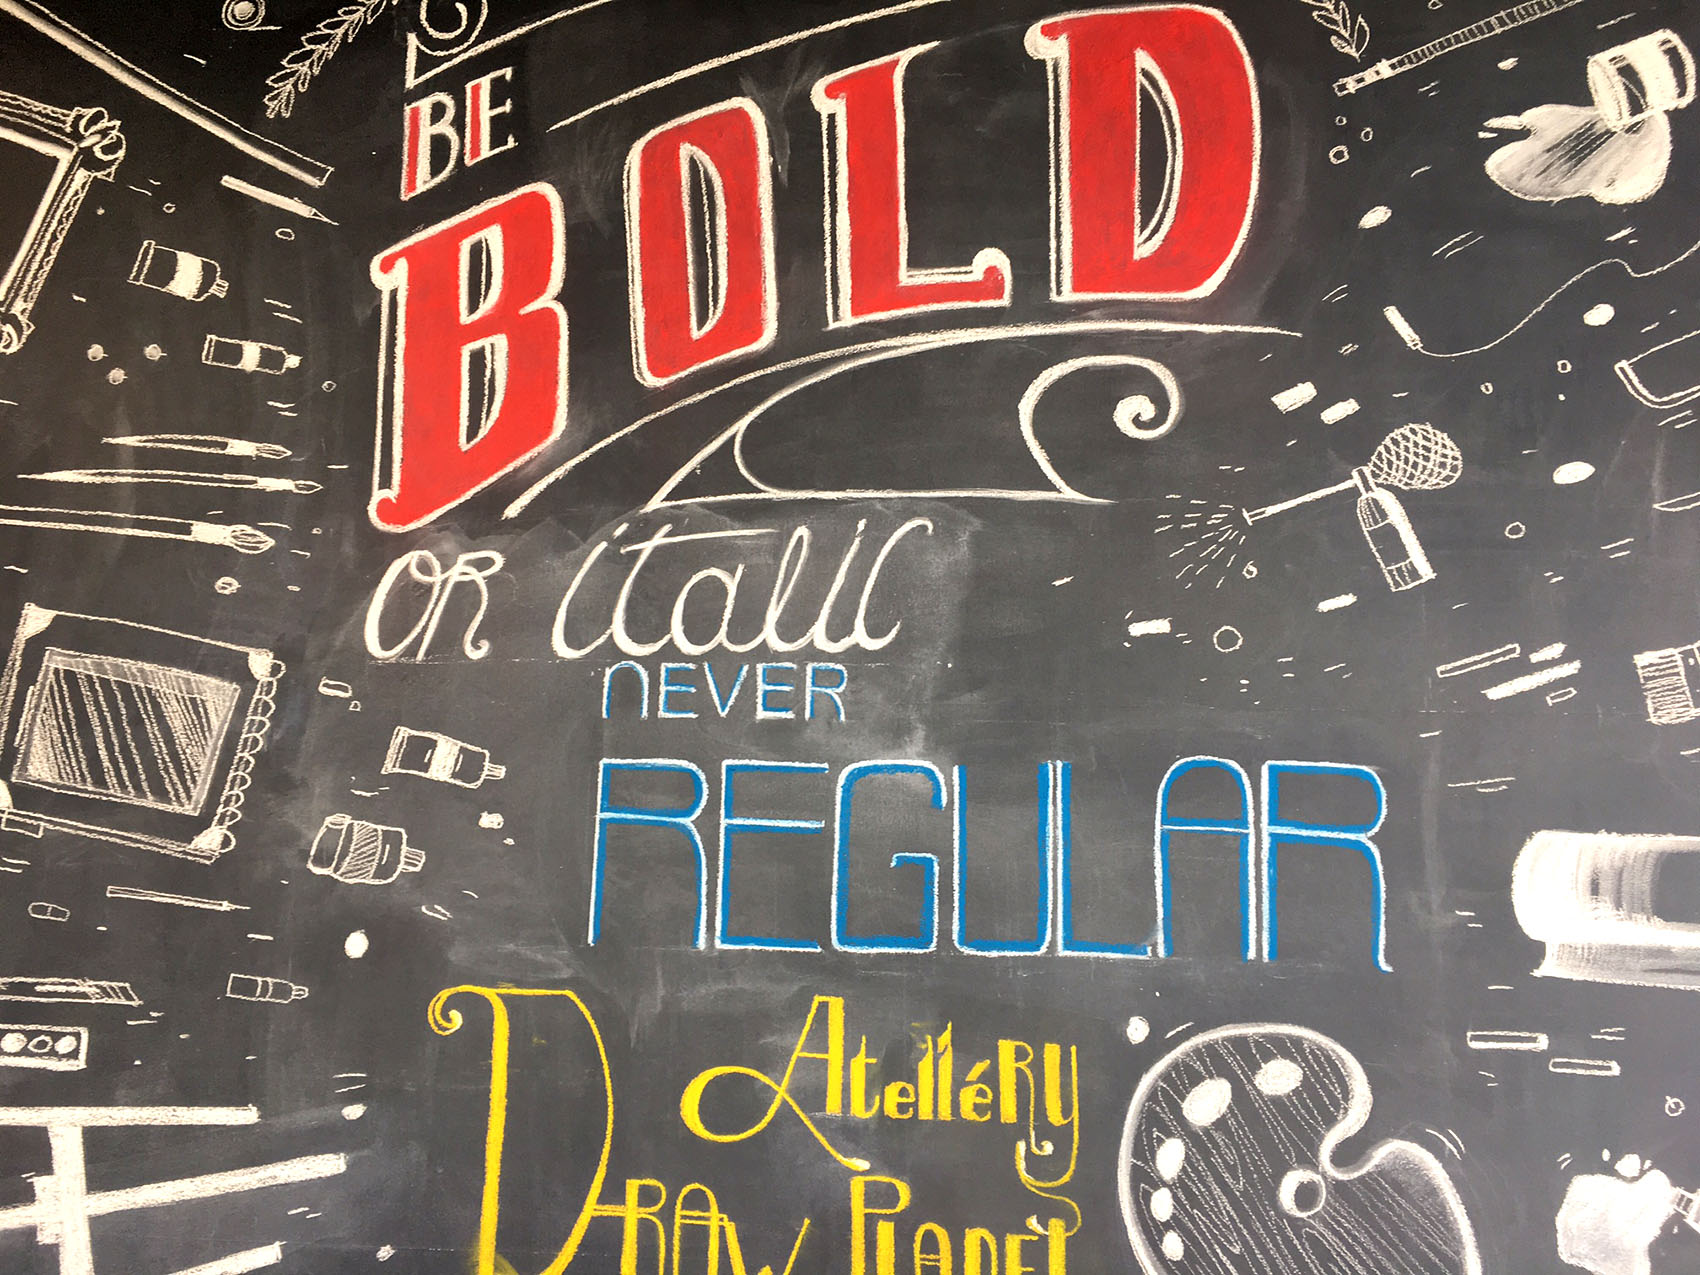 BE
BOLD
OR italic
nEVER
REGULAR
Atelléry
DRAW PLANET